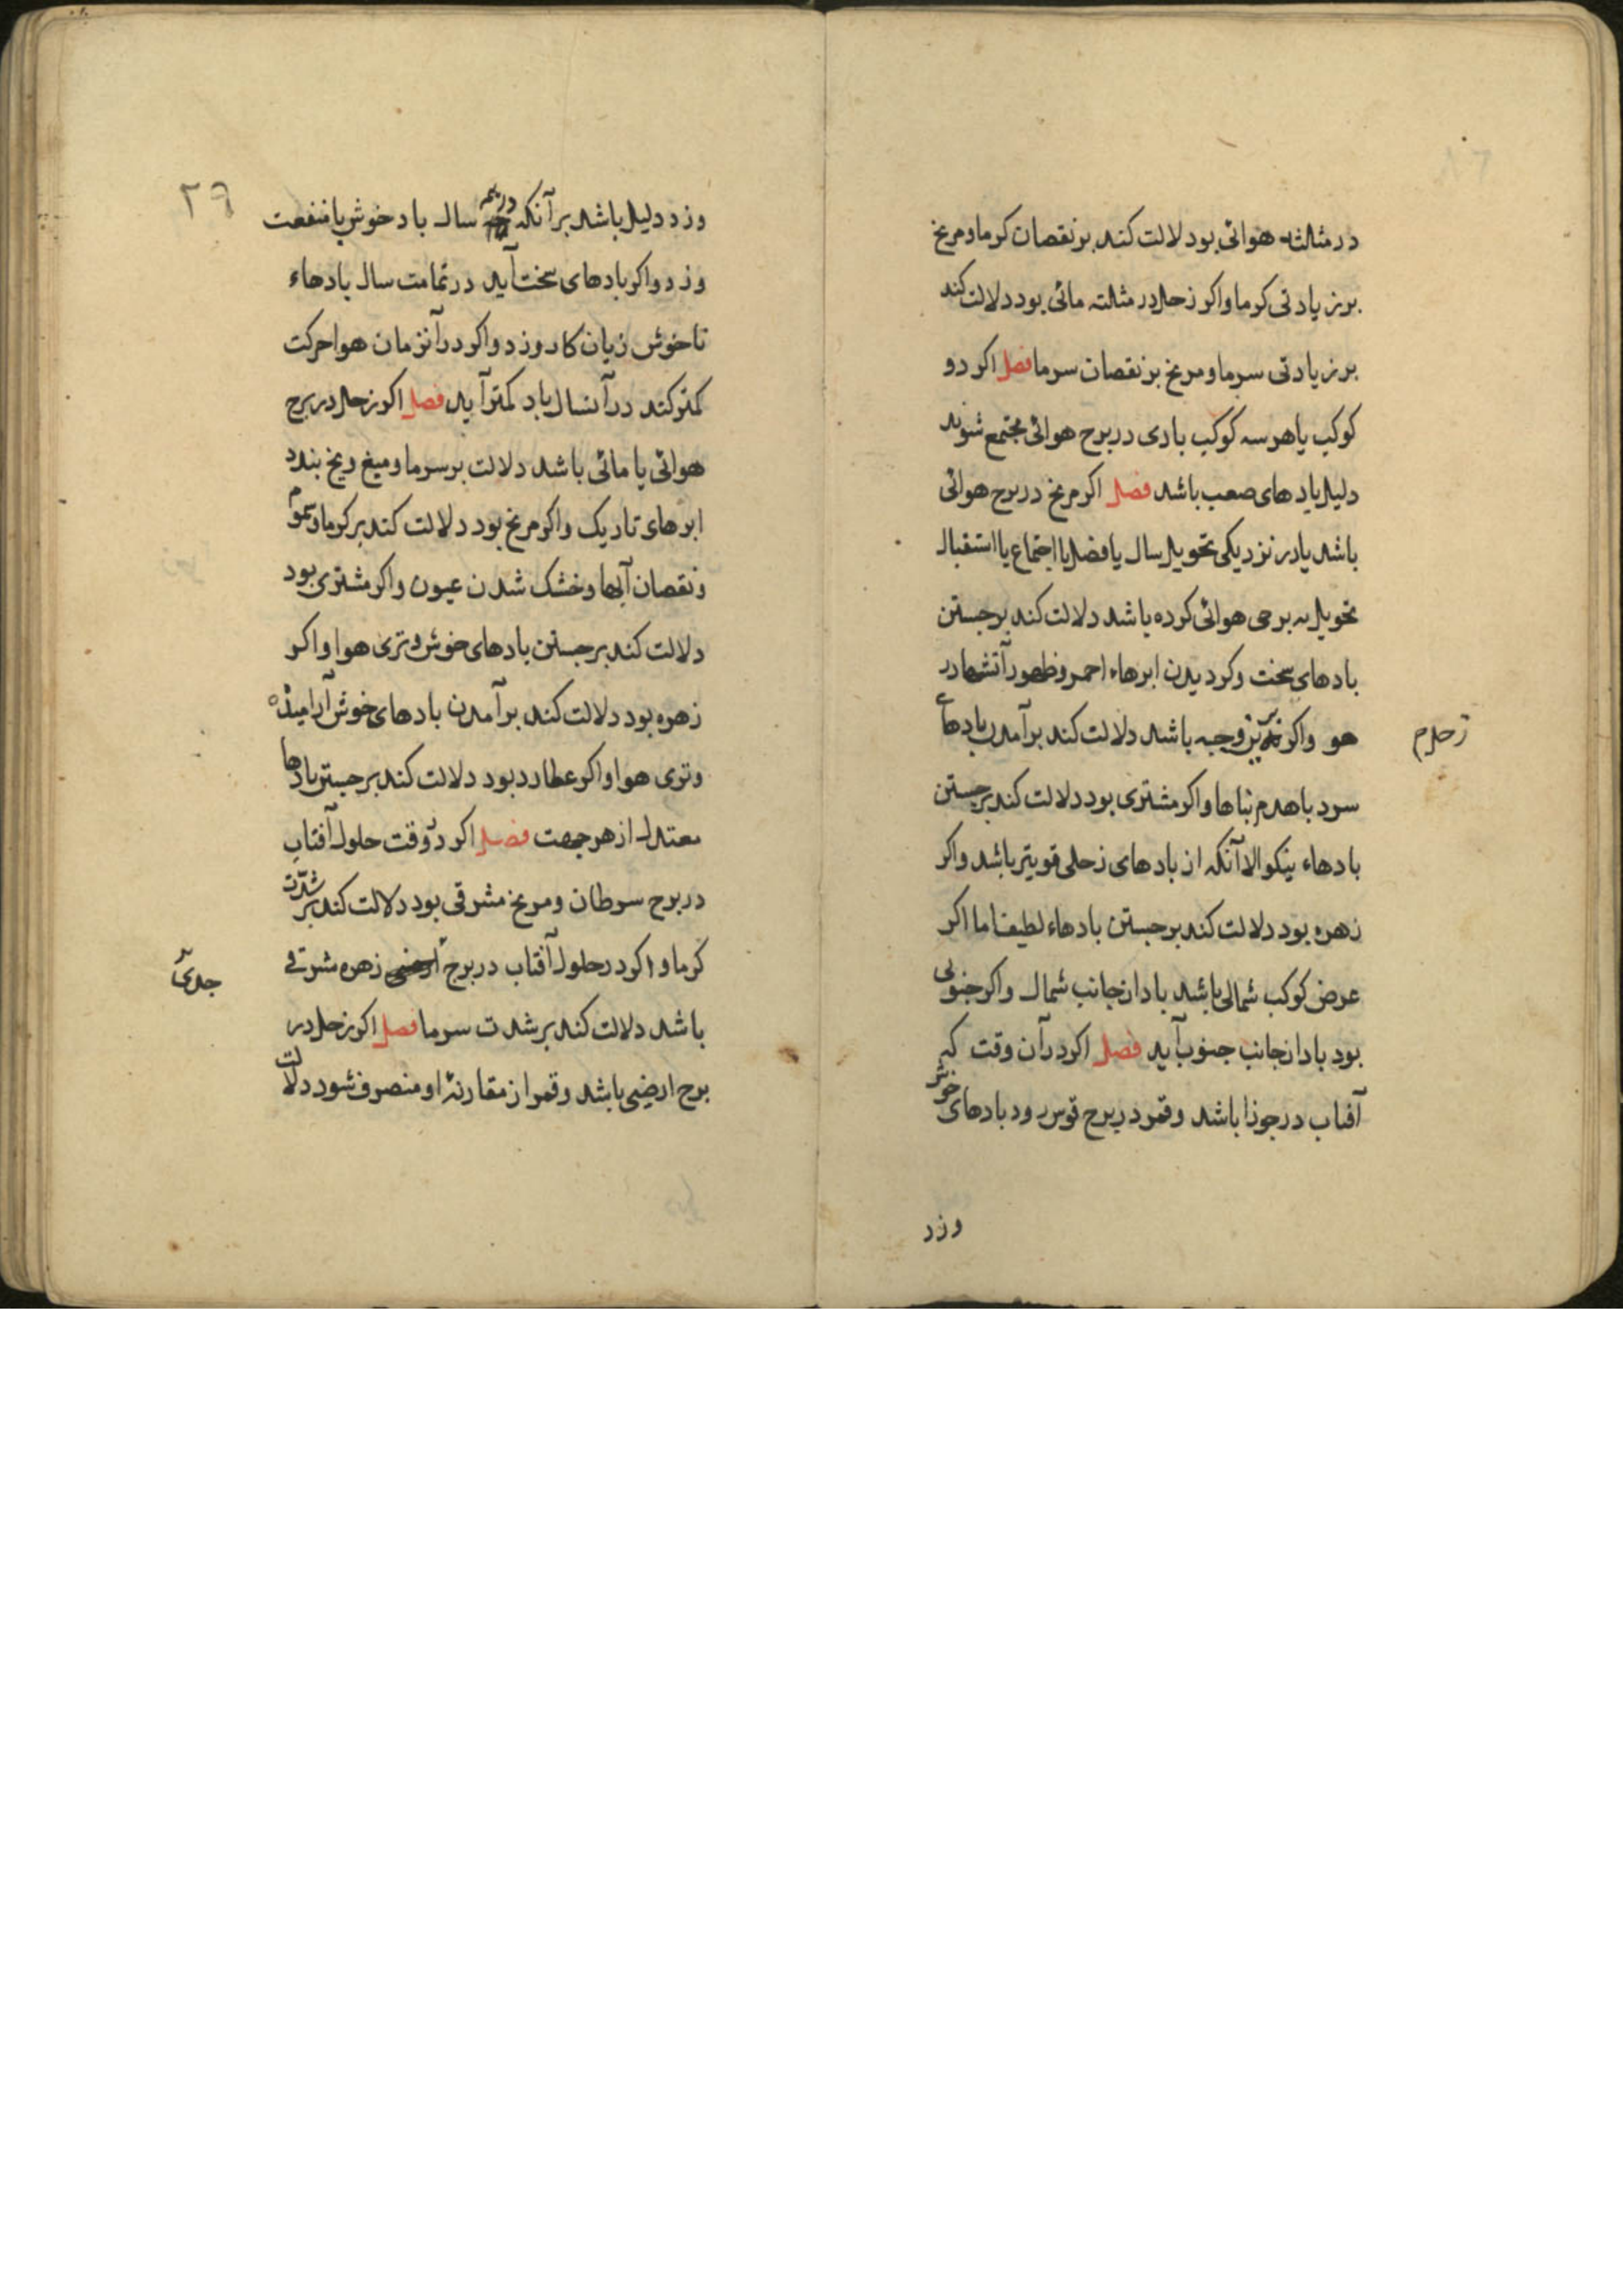 در مثلثه هوائی بود لالت کند بر نقصان کرما و مریخ
بر زیادتی کرما و اکر زحل در مثلثه مائی بود دلالت کند
بر زیادتی سرما و مریخ بر نقصان سرما فصل اکر دو
کوکب یا هر سه کوکب بادی در برج هوائی مجتمع شوند
دلیل بادهای صعب باشد فصل اکر مریخ در برج هوائی
باشد یا در نزدیکی تحویل سال یا فصل یا اجتماع یا استقبال
تحویل به برجی هوائی کرده باشد دلالت کند بر جستن
بادهای سخت و کردیدن ابرهاء احمر و ظهور آتشها در
هو واکر بدین وجه باشد دلالت کند بر آمدن بادهای
زحل م
سرد با هدم بناها و اکر مشتری بود دلالت کند بر جستن
بادهاء نیکو الا آنکه از بادهای زحلی قویتر باشد و اکر
زهره بود دلالت کند بر جستن بادهاء لطیف اما اکر
عرض کوکب شمالی باشد باد از جانب شمال و اکر جنوبی
بود باد از جانب جنوب آید فصل اکر در آن وقت که
آفتاب در جوزا باشد و قمر در برج قوس رود بادهای خوش
وزد
۲۶
وزد دلیل باشد بر آنکه در همه سال باد خوش با منفعت
وزد و اکر بادهای سخت آید در تمامت سال بادهاء
ناخوش زیان کار وزد و اکر در آنزمان هوا حرکت
کمتر کند در آنسال باد کمتر آید فصل اکر زحل در برج
هوائی یا مائی باشد دلالت بر سرما و میغ و یخ بندد
ابرهای تاریک و اکر مریخ بود دلالت کند بر کرما و سموم
و نقصان آبها و خشک شدن عیون و اکر مشتری بود
دلالت کند بر جستن بادهای خوش و تری هوا و اکر
زهره بود دلالت کند بر آمدن بادهای خوش آرامیده
و تری هوا و اکر عطارد بود دلالت کند بر جستن بادها
معتدل از هر جهت فصل اکر در وقت حلول آفتاب
در برج سرطان و مریخ مشرقی بود دلالت کند بر شدت
کرما و اکر در حلول آفتاب در برج ارضی زهره مشرقی
جدی
باشد دلالت کند بر شدت سرما فصل اکر زحل در
برج ارضی باشد و قمر از مقارنهٔ او منصرف شود دلالت